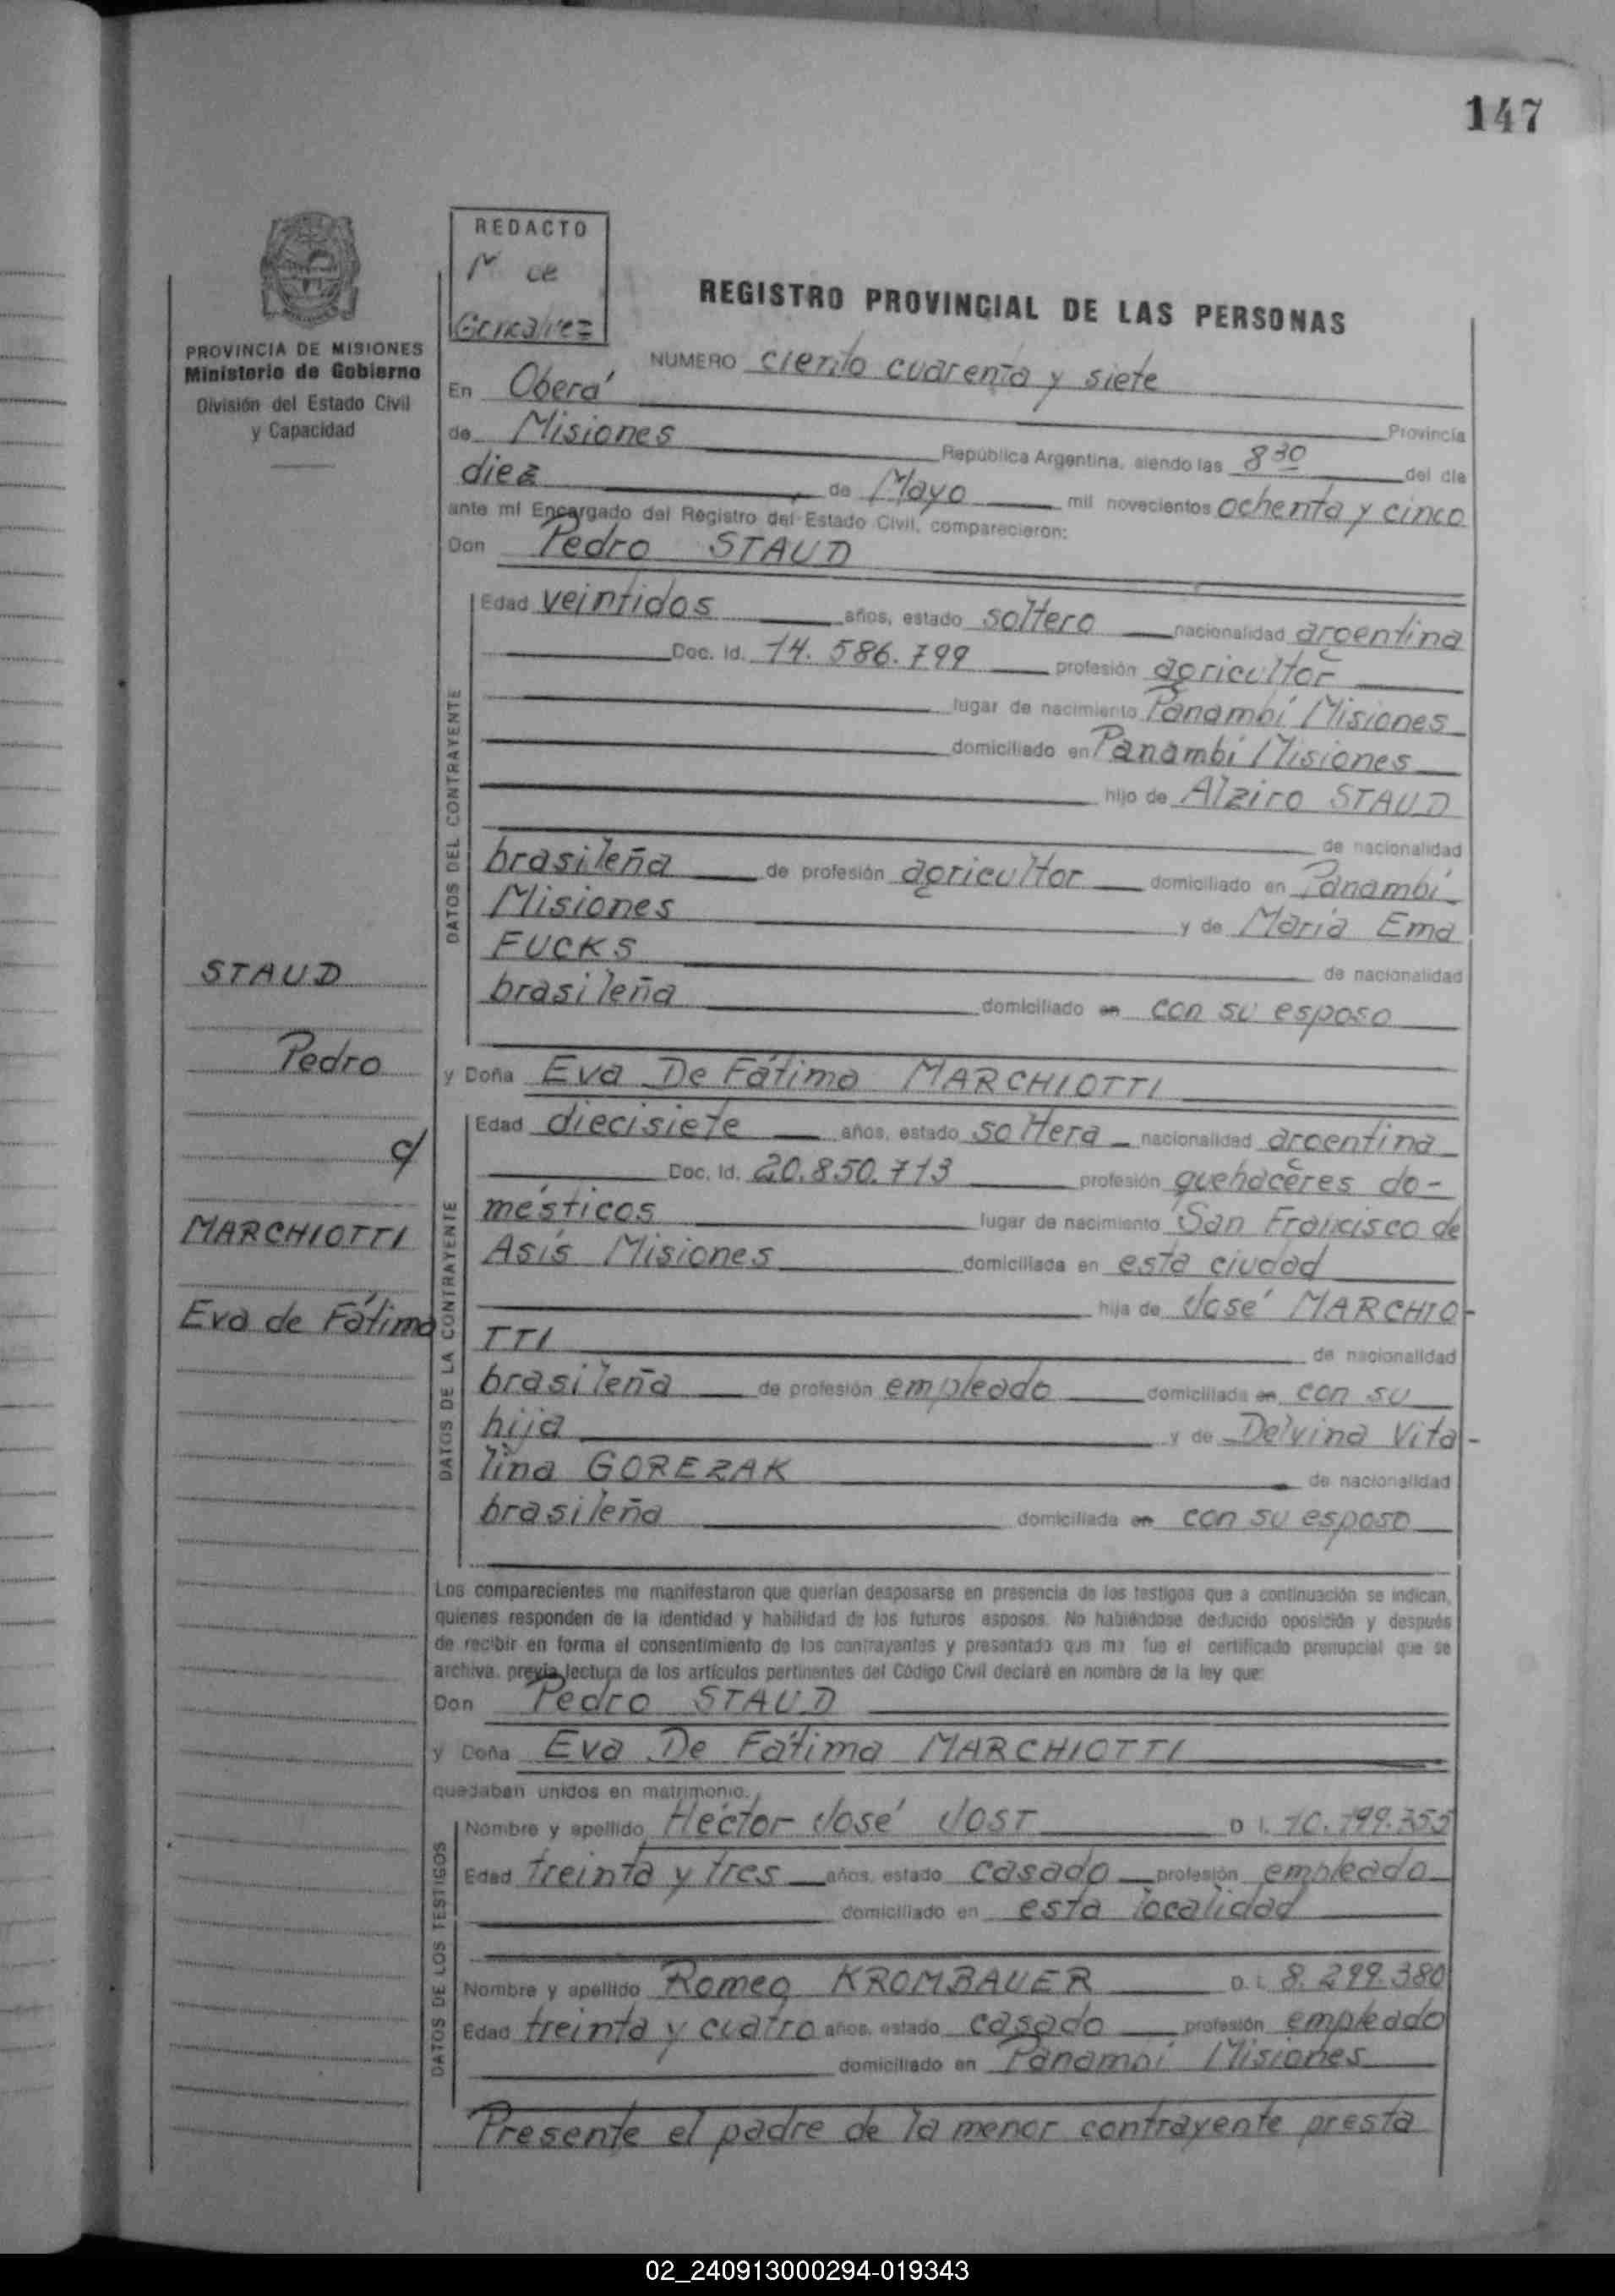 147
REDACTO
Gonzalvez
REGISTRO PROVINCIAL DE LAS PERSONAS
PROVINCIA DE MISIONES
Ministerio de Gobierno
División del Estado Civil
y Capacidad
NUMERO ciento cuarenta y siete
En Oberá
Provincia
de Misiones República Argentina, siendo las 8 30 del día
diez de Mayo mil novecientos ochenta y cinco
ante mí Encargado del Registro del Estado Civil, comparecieron:
Don Pedro STAUD
DATOS DEL CONTRAYENTE
Edad veintidos años, estado soltero nacionalidad argentina
Doc. Id. 14.586.799 profesión agricultor
lugar de nacimiento Panambí Misiones
domiciliado en Panambí Misiones
hijo de Alziro STAUD
de nacionalidad
brasileña de profesión agricultor domiciliado en Panambí
Misiones y de María Ema
FUCKS de nacionalidad
brasileña domiciliado en con su esposo
STAUD
Pedro
c/
MARCHIOTTI
Eva de Fátima
y Doña Eva De Fátima MARCHIOTTI
DATOS DE LA CONTRAYENTE
Edad diecisiete años, estado soltera nacionalidad argentina
Doc. Id. 20.850.713 profesión quehaceres do-
mésticos lugar de nacimiento San Francisco de
Asís Misiones domiciliada en esta ciudad
hija de José MARCHIO-
TTI de nacionalidad
brasileña de profesión empleado domiciliada en con su
hija y de Delvina Vita-
lina GOREZAK de nacionalidad
brasileña domiciliada en con su esposo
Los comparecientes me manifestaron que querían desposarse en presencia de los testigos que a continuación se indican,
quienes responden de la identidad y habilidad de los futuros esposos. No habiéndose deducido oposición y después
de recibir en forma el consentimiento de los contrayentes y presentado que me fue el certificado prenupcial que se
archiva, previa lectura de los artículos pertinentes del Código Civil declaré en nombre de la ley que:
Don Pedro STAUD
y Doña Eva De Fátima MARCHIOTTI
quedaban unidos en matrimonio.
DATOS DE LOS TESTIGOS
Nombre y apellido Héctor José JOST D. I. 10.199.355
Edad treinta y tres años, estado casado profesión empleado
domiciliado en esta localidad
Nombre y apellido Romeo KROMBAUER D. I. 8.299.380
Edad treinta y cuatro años, estado casado profesión empleado
domiciliado en Panambí Misiones
Presente el padre de la menor contrayente presta
02_240913000294-019343